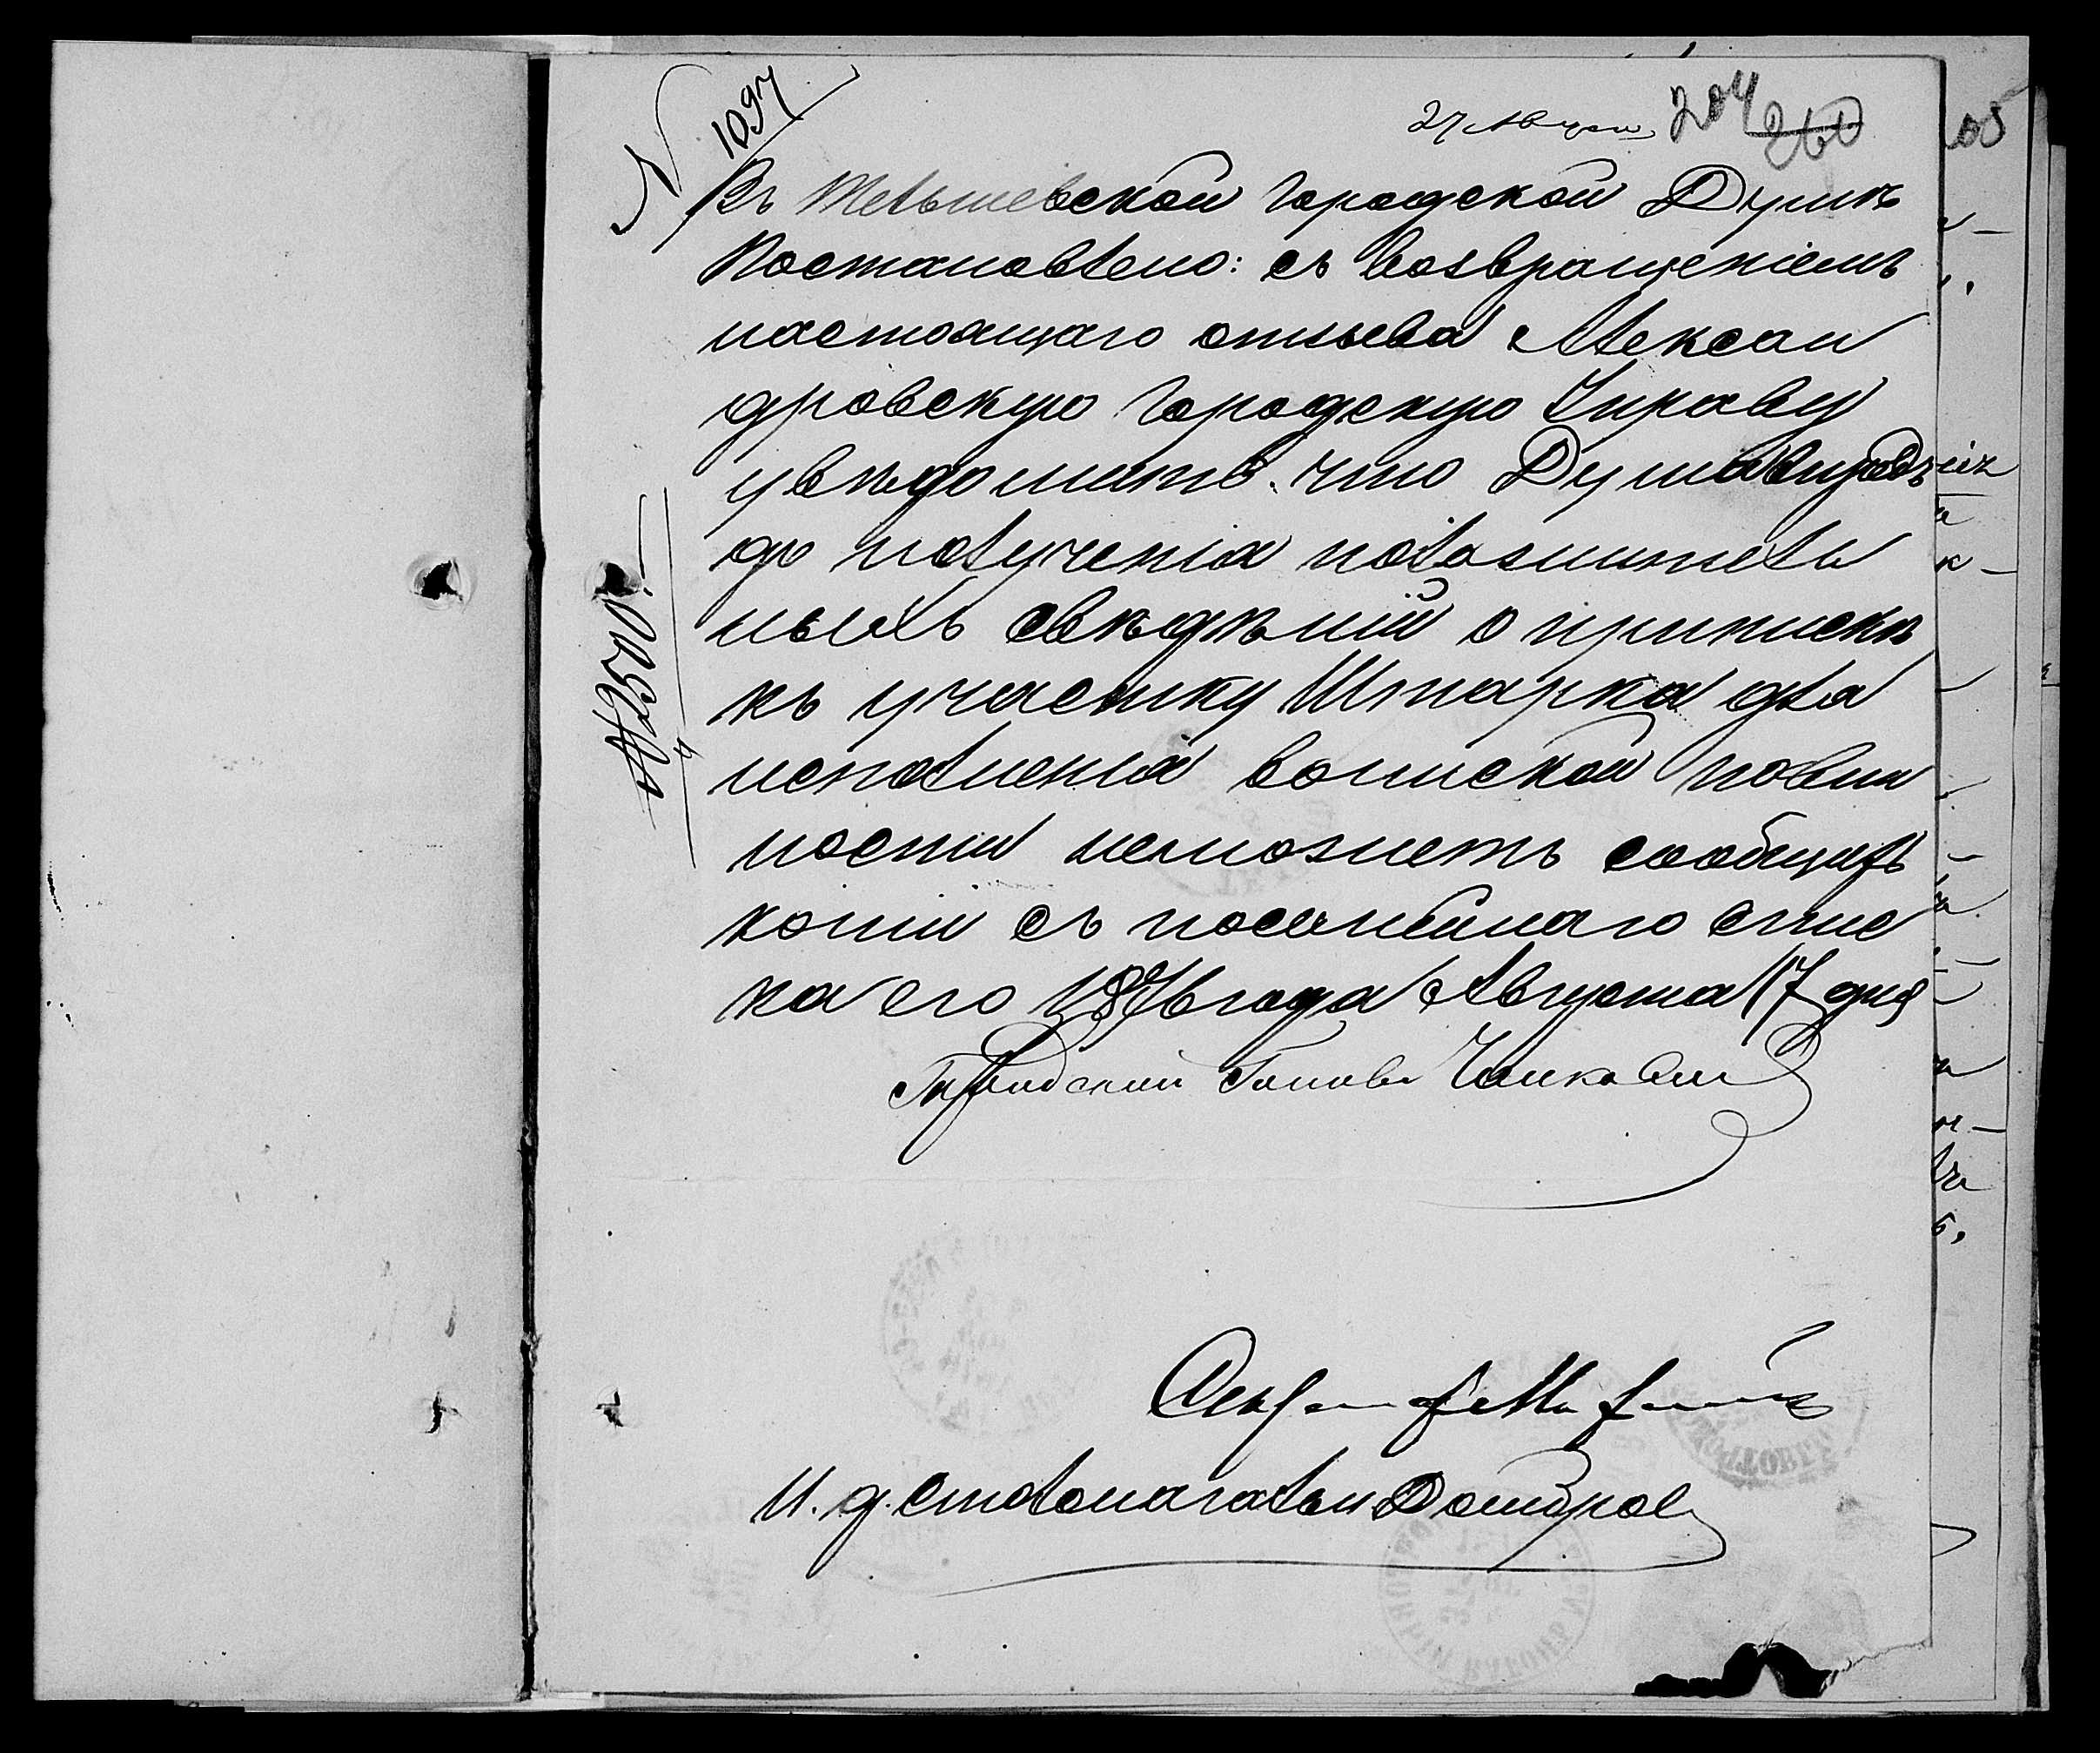 N 1097
27 Авгус.
204
260
Въ Тельшевской Городской Думѣ
Постановлено: съ возвращеніемъ
настоящаго отзыва Алексан
дровскую Городскую Управу
увѣдомить, что Дума впредь
до полученія положитель
ныхъ свѣдѣній о припискѣ
къ участку Шпарка для
исполненія воинской повин
ности неможетъ сообщить
копіи съ посемейнаго спис
ка его 1876 года Августа 17 дня
Городской Голова
Секретарь
И. д. Столоначальн
№ 2500.
205